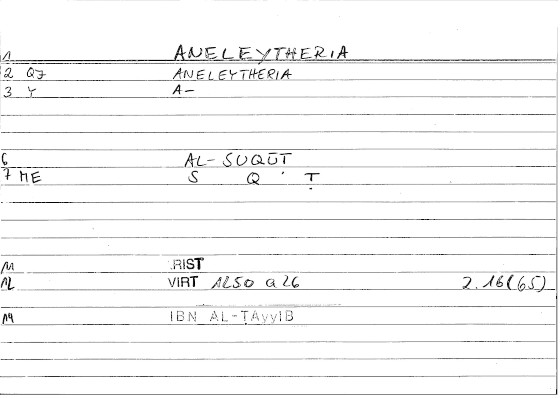 1 ANELEYTHERIA
2 Q7 ANELEYTHERIA
3 Y A-
6 AL-SUQŪṬ
7 ME S Q ' Ṭ
11 .RIST
12 VIRT 1250 a 26 2.16(65)
14 IBN AL-TAyyIB